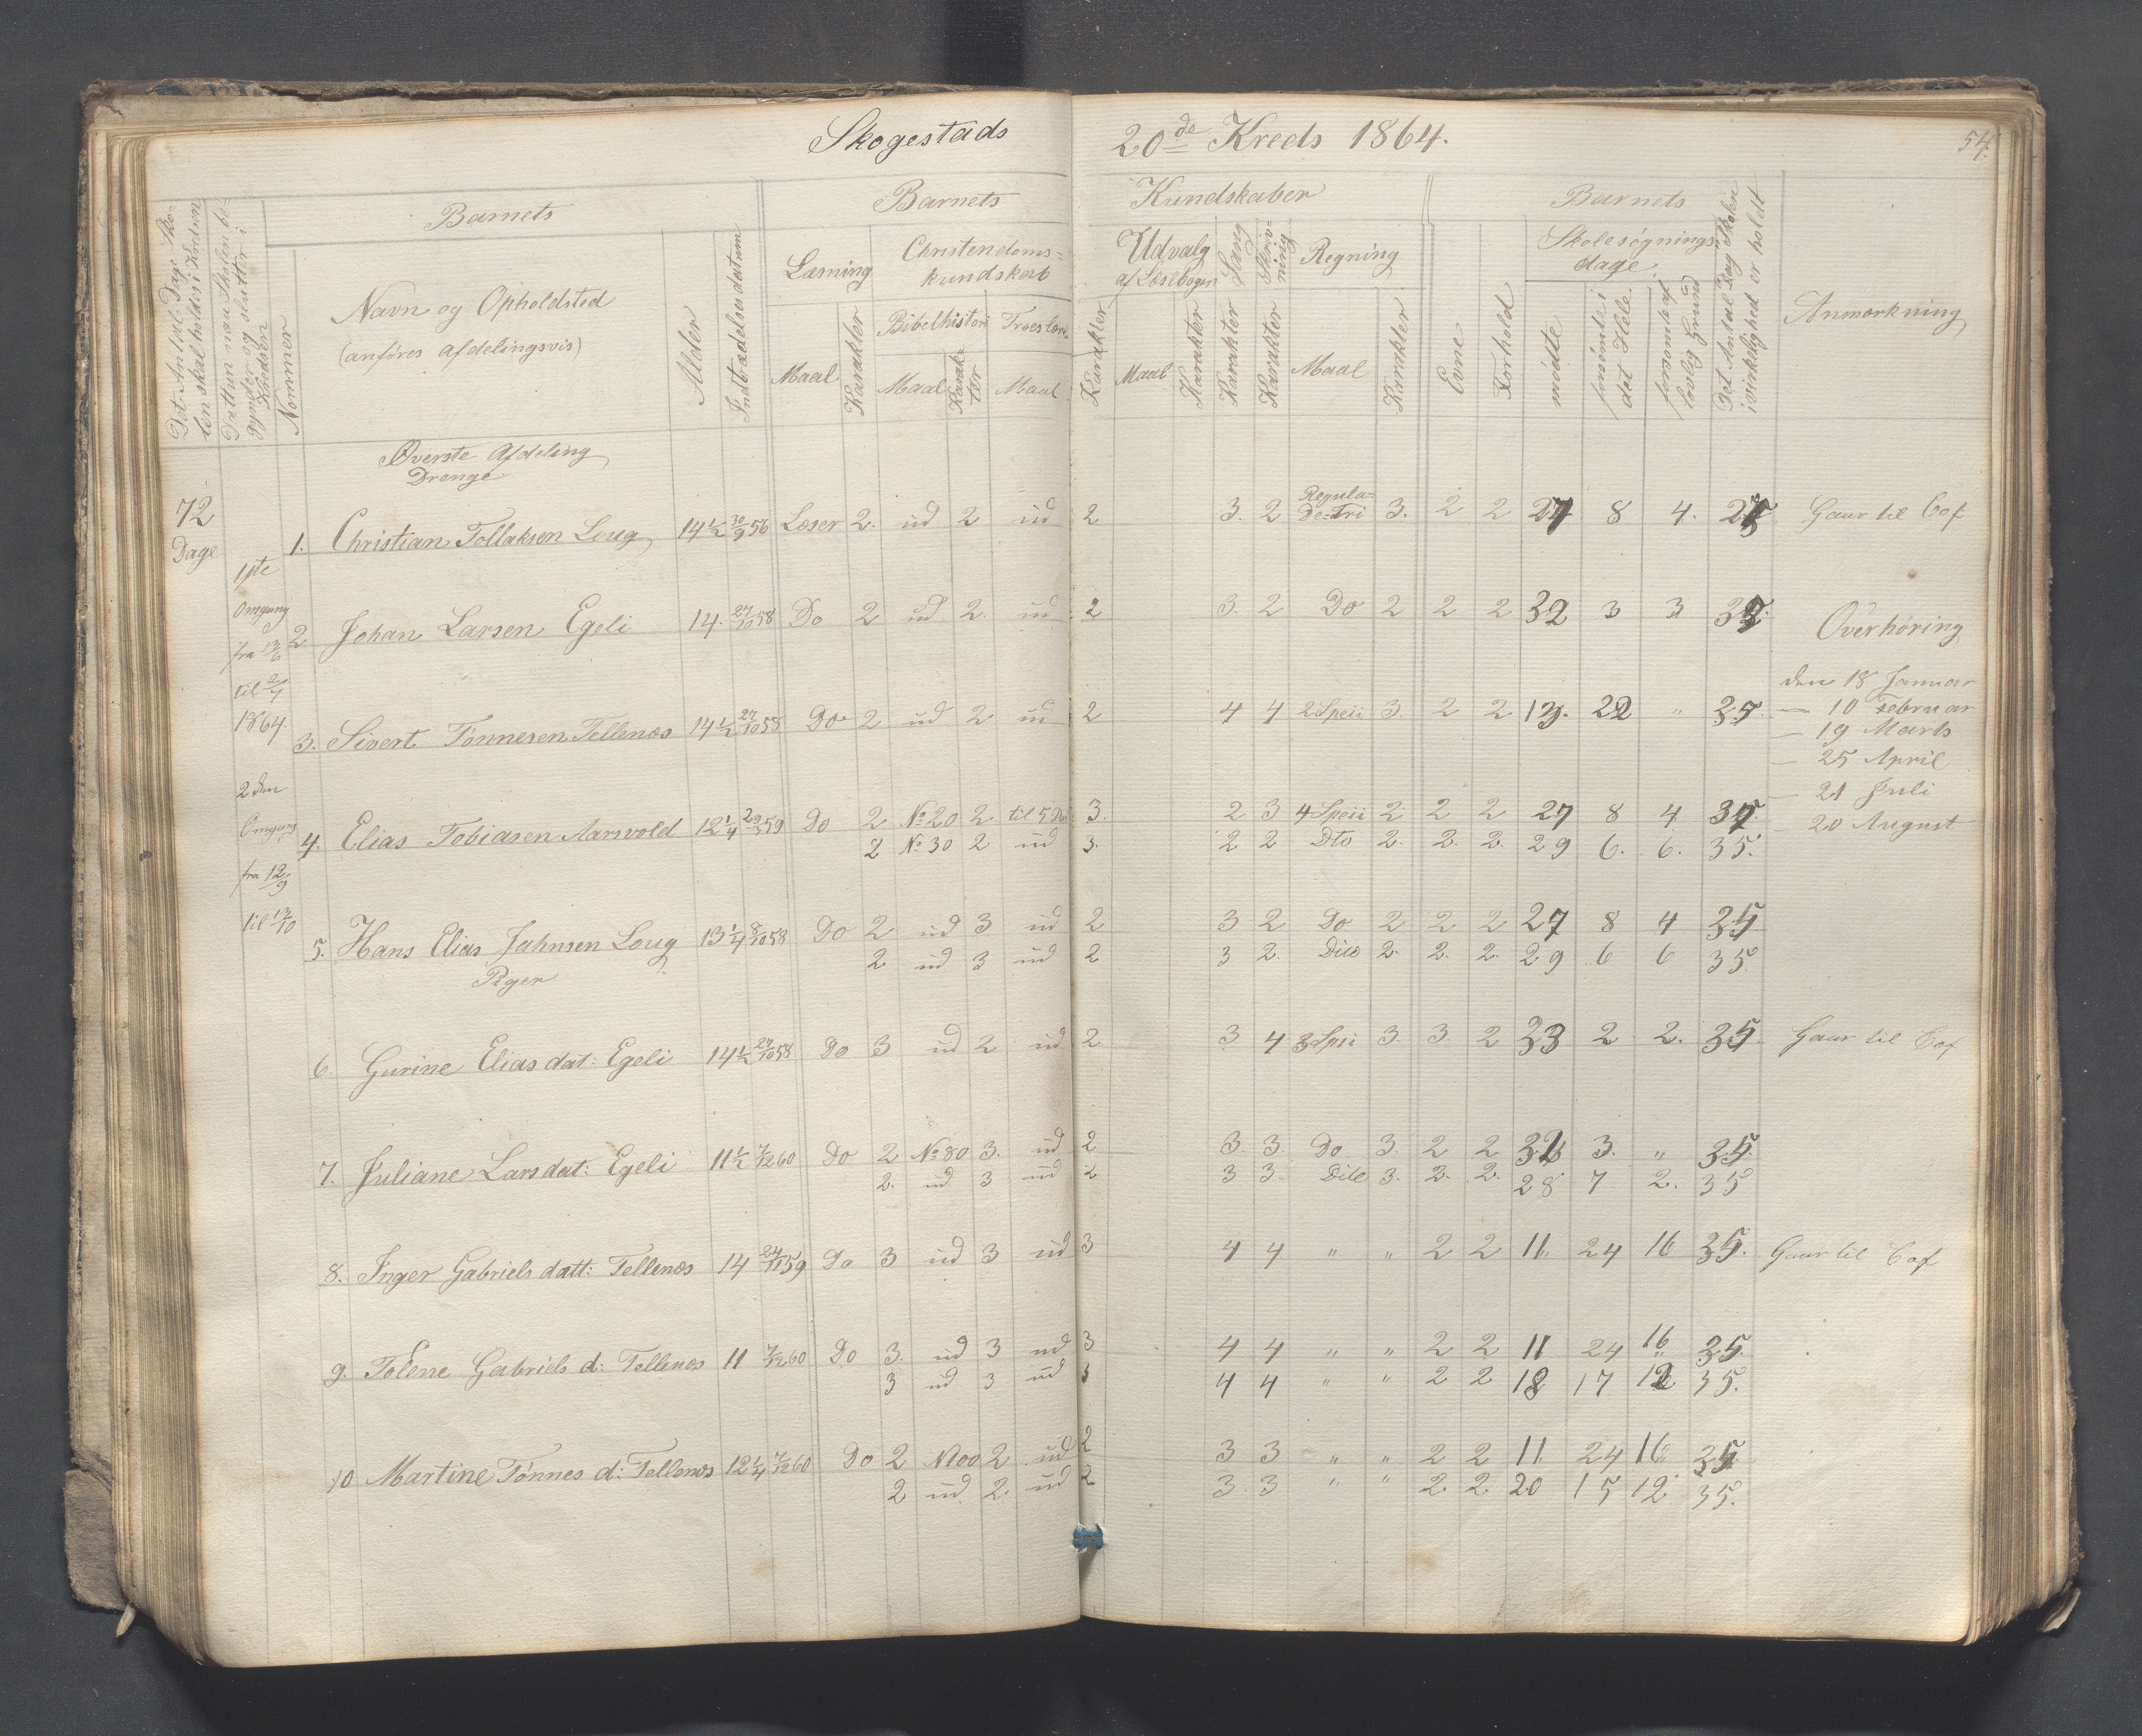 Skogestads 20de Kreds 1864.
54.
Det Antal Dage Skolen skal holdes i Kredsen
Datum naar Skolen begynder og slutter i Kredsen
Nommer
Barnets
Navn og Opholdsted
(anføres afdelingsvis)
Alder
Indtrædelsesdatum
Barnets Kundskaber
Læsning
Maal
Karakter
Christendoms=
kundskab
Bibelhistori
Maal
Karakter
Troeslære
Maal
Karakter
Udvalg
af Læsebogen
Maal
Karakter
Sang
Karakter
Skrivning
Karakter
Regning
Maal
Karakter
Barnets
Evne
Forhold
Skolesøgnings
dage
mødte
forsømte i det Hele
forsømte af lovlig Grund
Det Antal Dage Skolen i virkelighed er holdt
Anmærkning
Øverste Afdeling
Drenge
72
Dage
1ste
Omgang
fra 13/6
til 2/7
1864.
2den
Omgang
fra 12/9
til 13/10
1. Christian Tollaksen Loug 14 1/2 30/9 56 Læser 2. ud 2 ud 2 3. 2 Regula-
De-Tri 3. 2 2 27 8 4. 35 Gaar til Cof
2 Johan Larsen Egeli 14. 27/10 58 Do 2 ud 2. ud 2 3. 2 Do 2 2 2 32 3 3 35.
3. Sivert Tønnesen Tellenæs 14 1/2 27/10 58 Do 2 ud 2 ud 2 4 4 2 Speii 3. 2 2 13. 22 " 35
4. Elias Tobiasen Aarsvold 12 1/4 29/3 59 Do 2 No 20 2 til 5 3. 2 3 4 Speii 2 2 2 27 8 4 35.
2 No 30 2 ud 3. 2 2 Dto 2. 2. 2. 29 6. 6. 35.
5. Hans Elias Jahnsen Loug 13 1/4 8/10 58 Do 2 ud 3 ud 2 3 2 Do 2 2 2 27 8 4 35
2 ud 3 ud 2 3 2 Dito 2. 2. 2. 29 6 6 35
Piger
6. Gurine Elias dat: Egeli 14 1/2 27/10 58 Do 3 ud 2 ud 2 3 4 3 Speii 3. 3. 2 33 2 2. 35. Gaar til Cof
7. Juliane Lars dat: Egeli 11 1/2 7/12 60 Do 2 No 80 3. ud 2 3 3 Do 3. 2 2 32 3. " 35.
2. ud 3 ud 2 3 3 Dito 3. 2. 2. 28 7 2. 35
8. Inger Gabriels datt: Tellenæs 14 24/11 59 Do 3 ud 3 ud 3 4 4 " " 2 2 11 24 16 35. Gaar til Cof
9. Tolene Gabriels d: Tellenæs 11 7/12 60 Do 3. ud 3 ud 3 4 4 " " 2 2 11 24 16 35.
3 ud 3 ud 3 4 4 " " 2 2 18 17 12 35.
10 Martine Tønnes d: Tellenæs 12 1/4 7/12 60 Do 2 N100 2 ud 2 3 3 " " 2 2 11 24 16 35.
2 ud 2. ud 2 3. 3 " " 2 2 20 15 12 35.
Overhøring
den 18 Januar
— 10 Februar
— 19 Marts
— 25 April
— 21 Juli
— 20 August